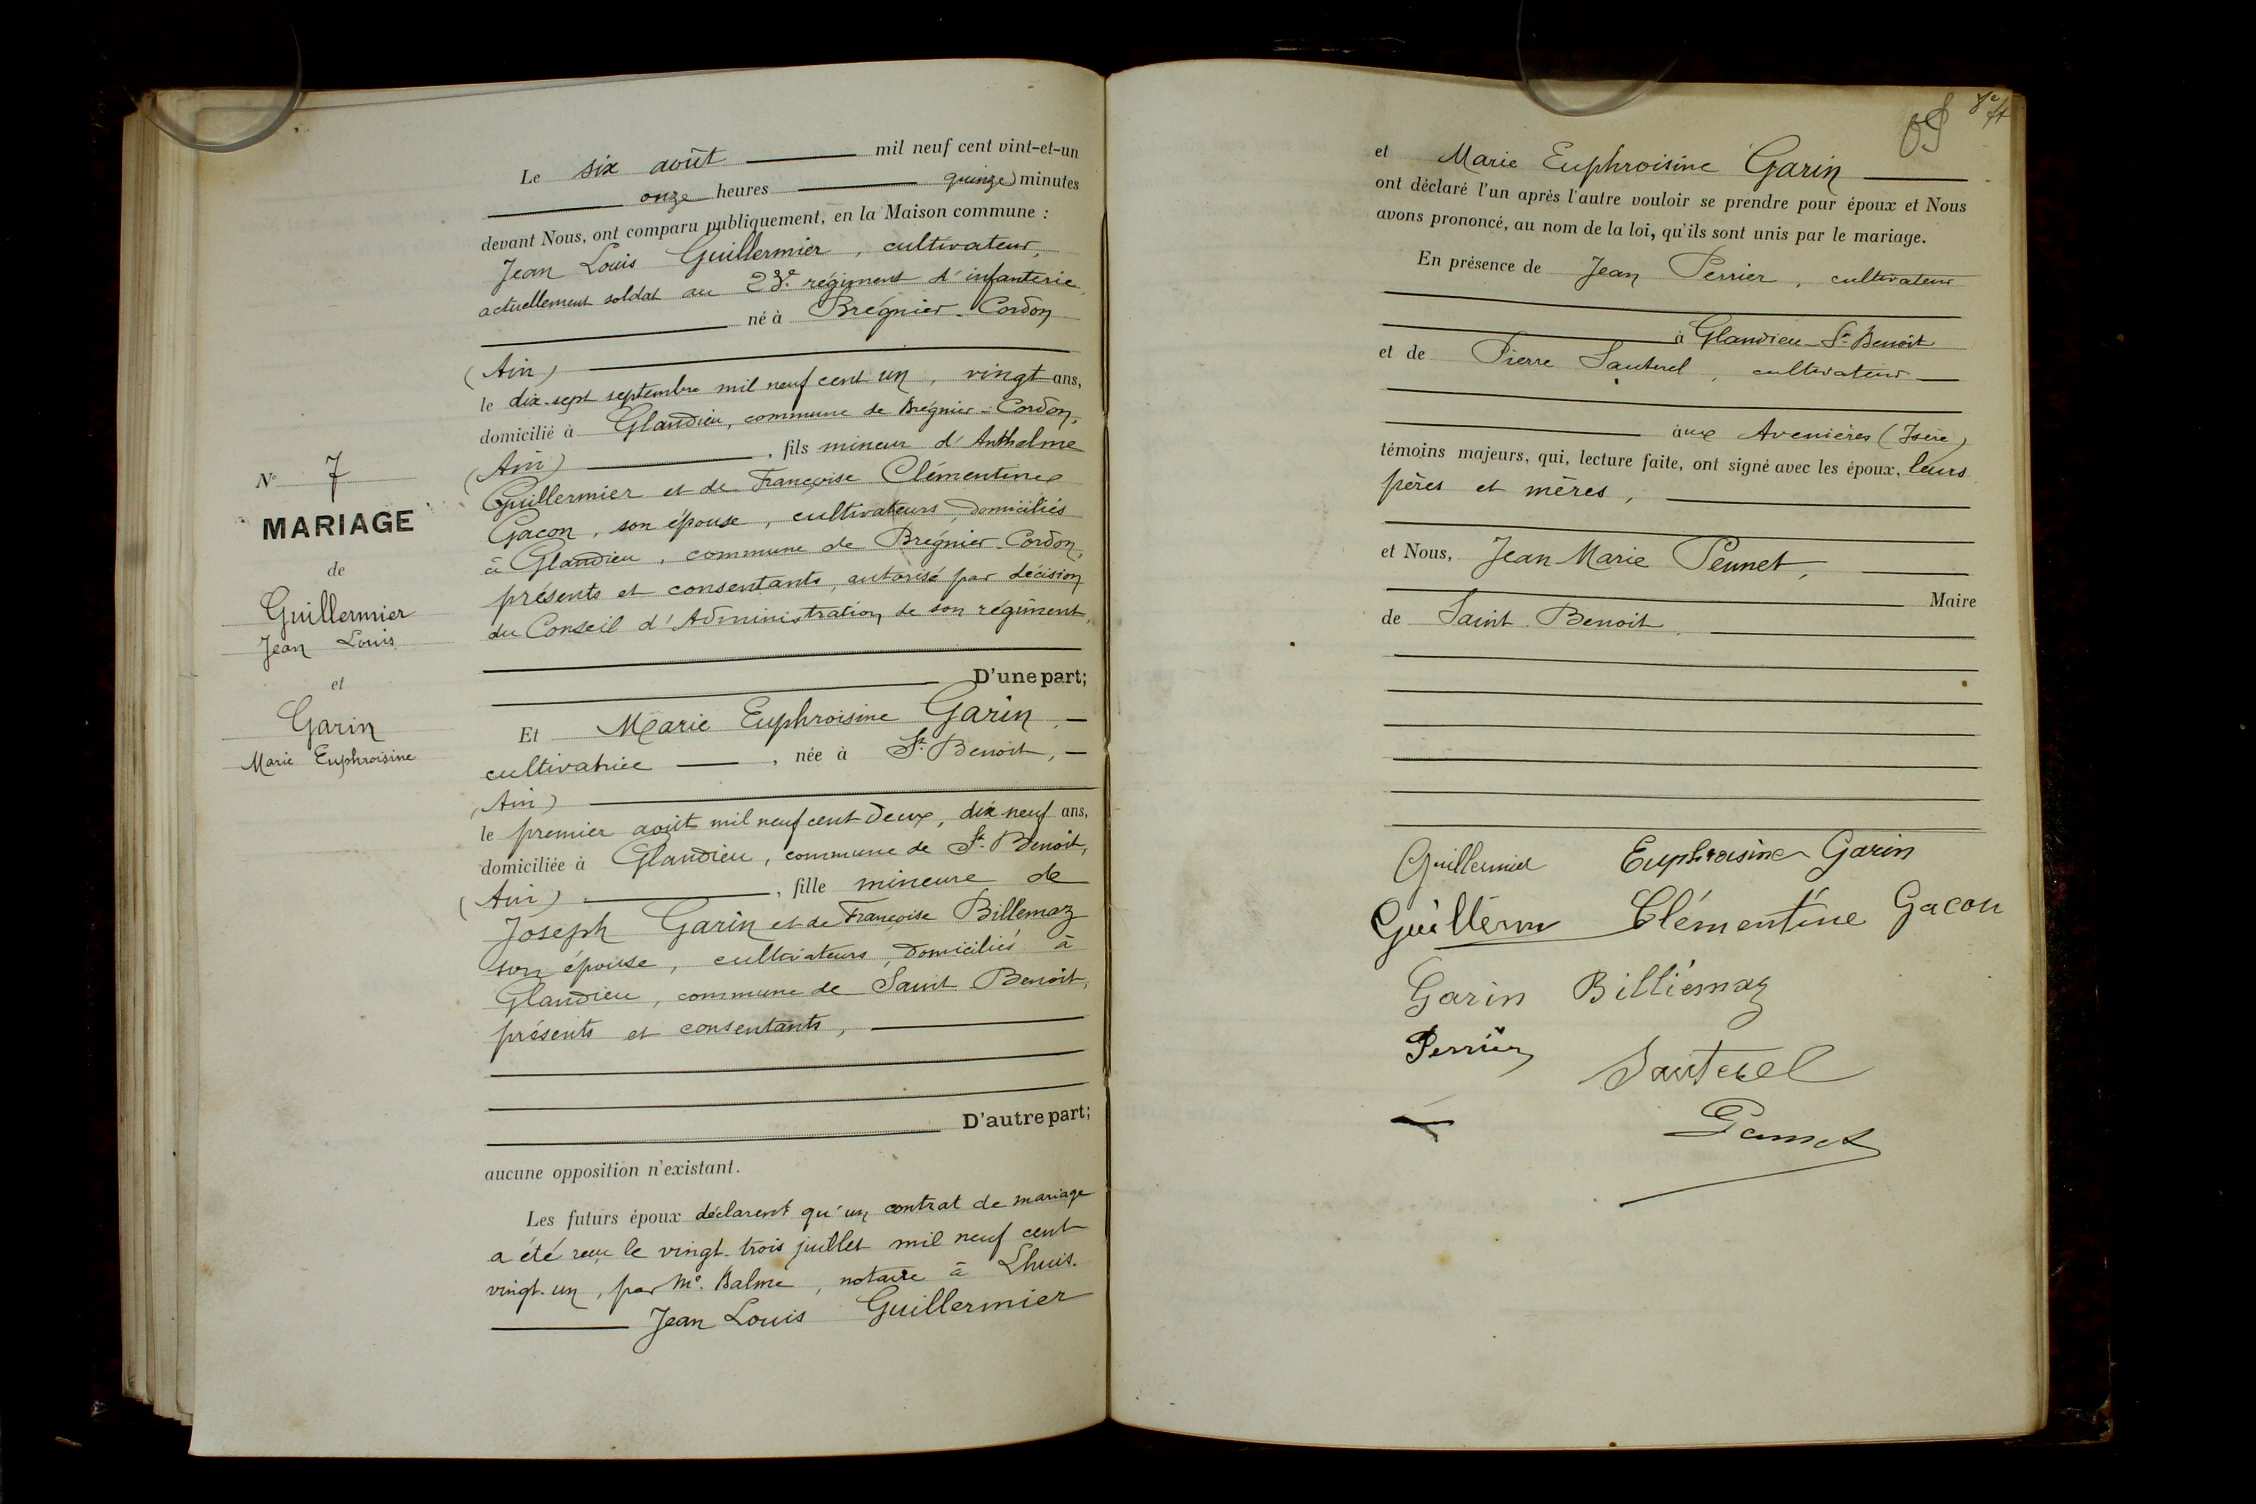 Le six août mil neuf cent vint-et-un
onze heures quinze minutes
devant Nous, ont comparu publiquement, en la Maison commune :
Jean Louis Guillermier, cultivateur,
actuellement soldat au 23e régiment d'infanterie,
né à Brégnier-Cordon
(Ain)
le dix-sept septembre mil neuf cent un, vingt ans,
domicilié à Glandieu, commune de Brégnier-Cordon,
(Ain), fils mineur d'Anthelme
Guillermier et de Françoise Clémentine
Gacon, son épouse, cultivateurs, domiciliés
à Glandieu, commune de Brégnier-Cordon,
présents et consentants, autorisé par décision
du Conseil d'Administration de son régiment,
D'une part;
Et Marie Euphroisine Garin,
cultivatrice, née à St. Benoit,
(Ain)
le premier août mil neuf cent deux, dix neuf ans,
domiciliée à Glandieu, commune de St. Benoit,
(Ain), fille mineure de
Joseph Garin et de Françoise Billemaz
son épouse, cultivateurs, domiciliés à
Glandieu, commune de Saint Benoit,
présents et consentants,
D'autre part;
aucune opposition n'existant.
Les futurs époux déclarent qu'un contrat de mariage
a été reçu le vingt-trois juillet mil neuf cent
vingt-un, par Me. Balme, notaire à Lhuis.
Jean Louis Guillermier
No 7
MARIAGE
de
Guillermier
Jean Louis
et
Garin
Marie Euphroisine
et Marie Euphroisine Garin
ont déclaré l'un après l'autre vouloir se prendre pour époux et Nous
avons prononcé, au nom de la loi, qu'ils sont unis par le mariage.
En présence de Jean Perrier, cultivateur
à Glandieu-St. Benoit
et de Pierre Sauterel, cultivateur
aux Avenières (Isère)
témoins majeurs, qui, lecture faite, ont signé avec les époux, leurs
pères et mères,
et Nous, Jean Marie Peunet,
Maire
de Saint Benoit
Guillermier Euphroisine Garin
Guillerm Clémentine Gacon
Garin Billiémaz
Perrier
Sauterel